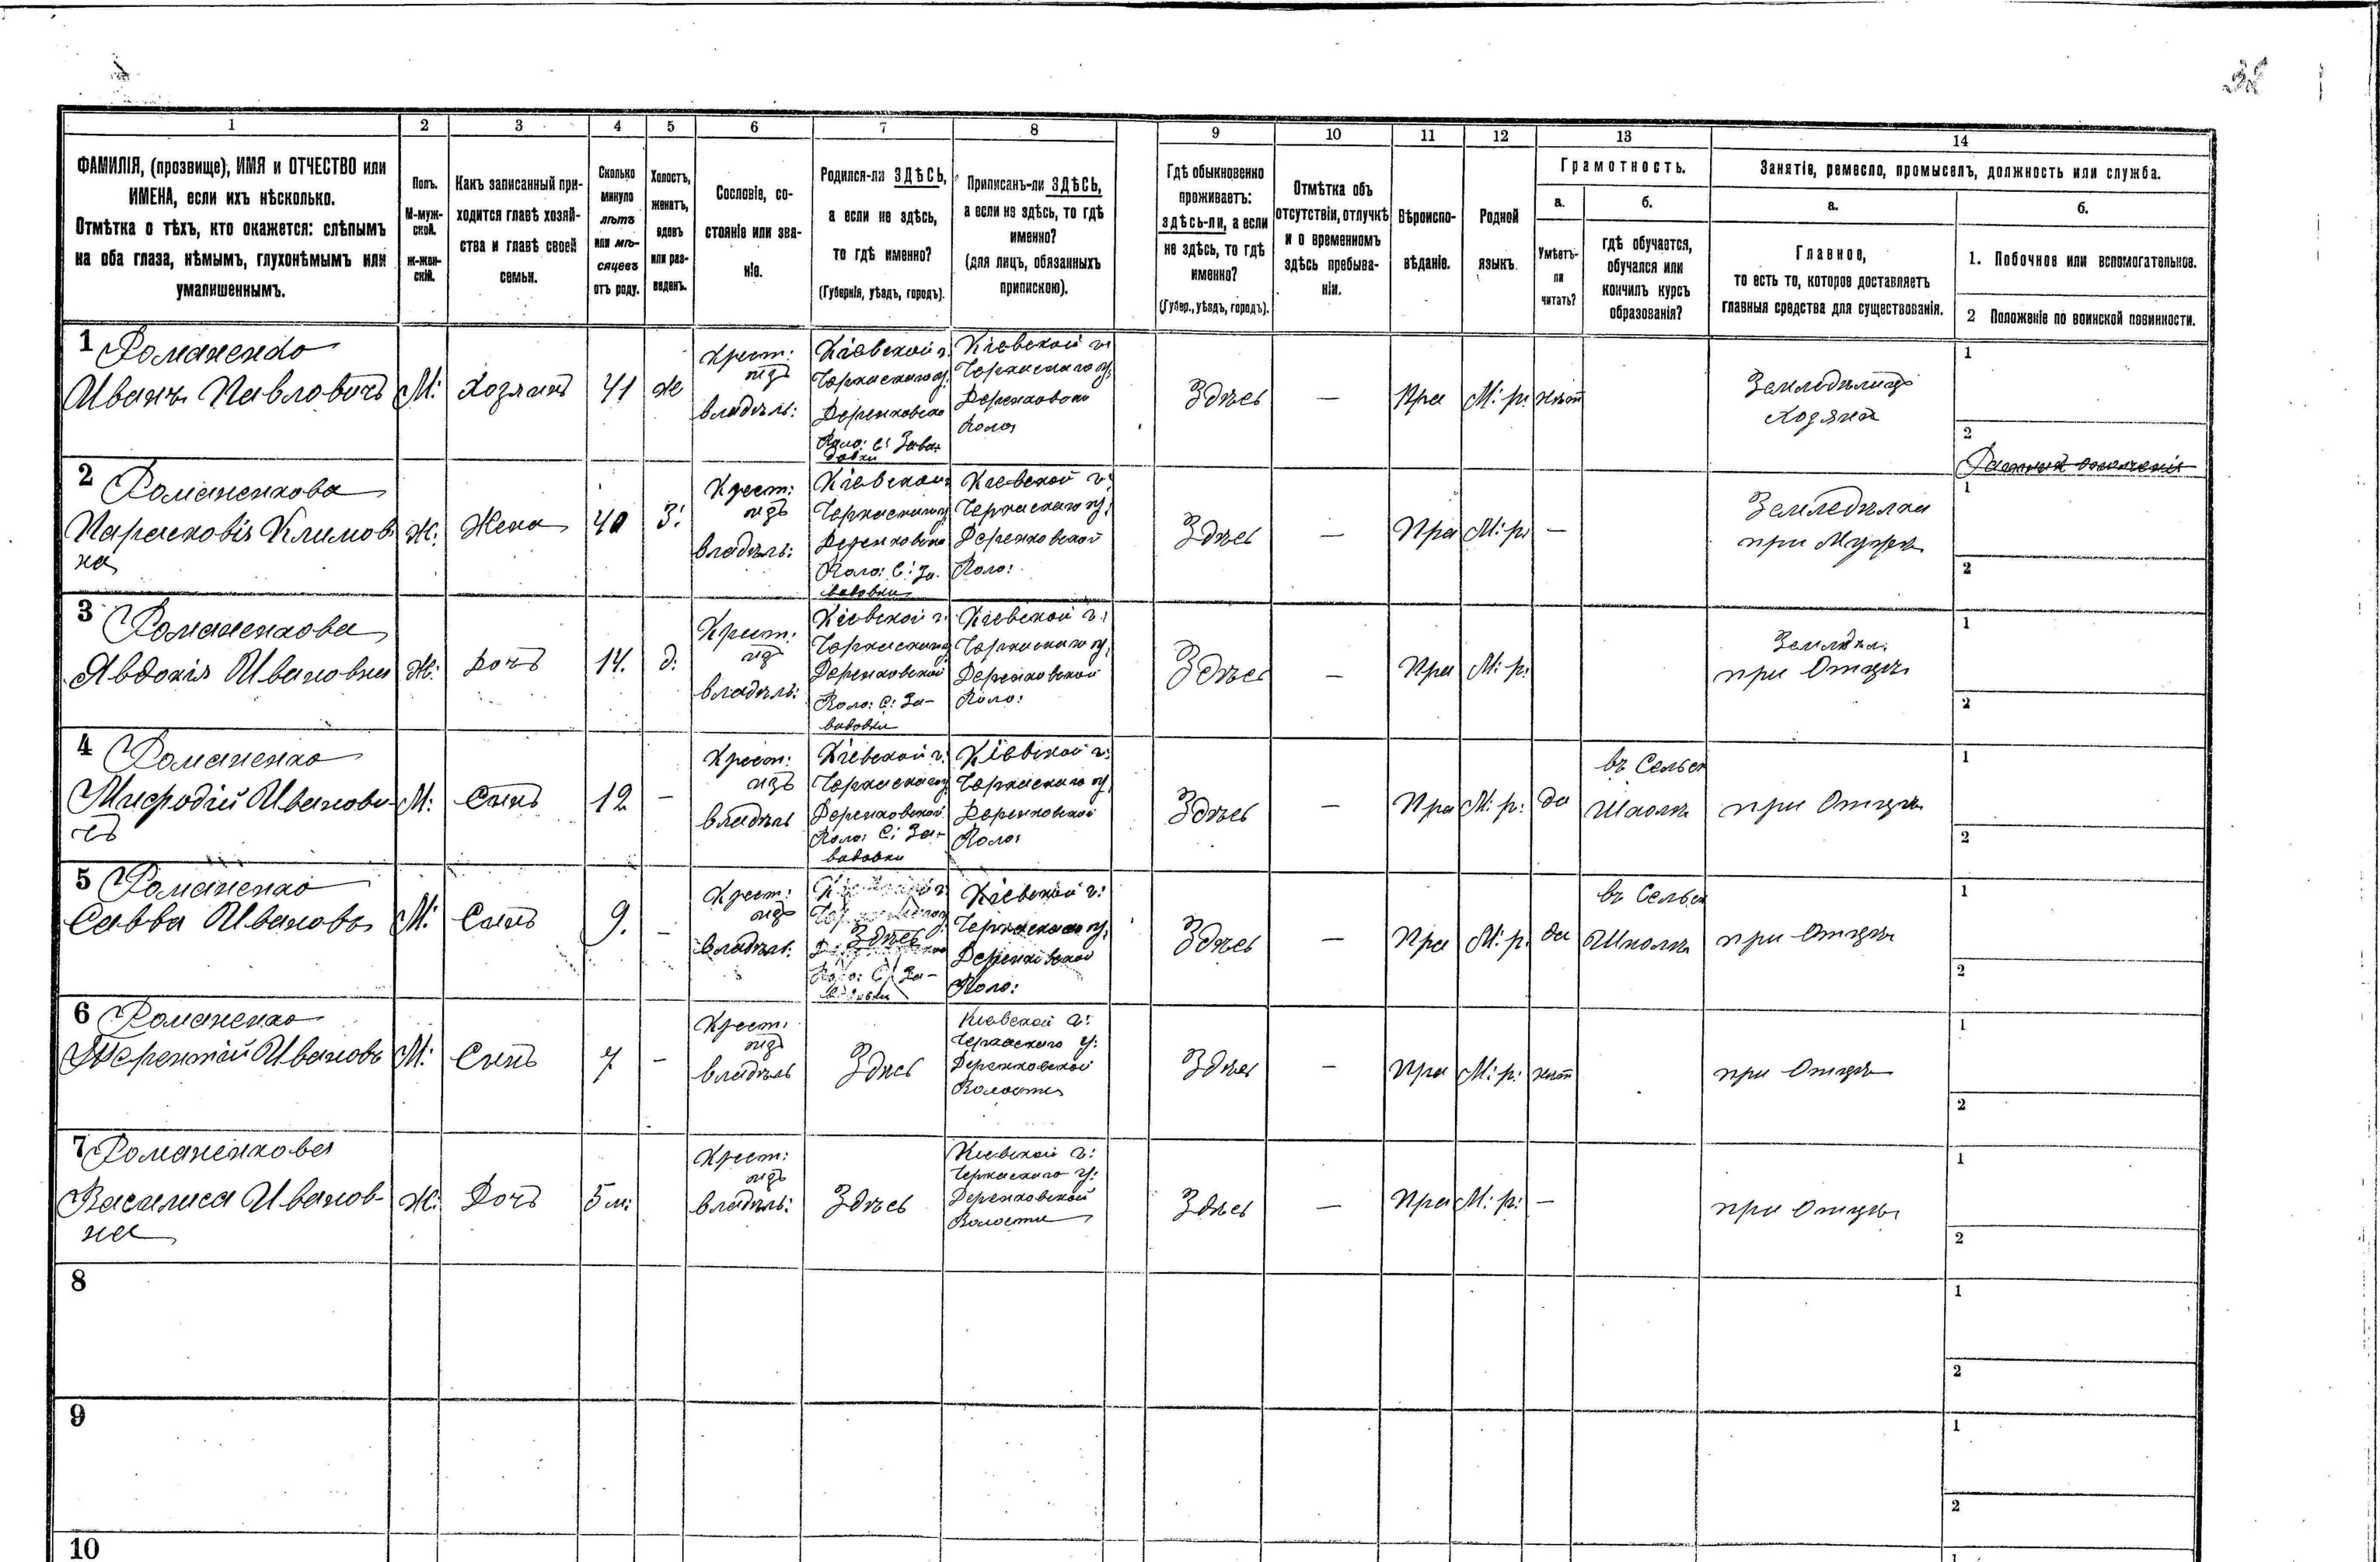 32
1 2 3 4 5 6 7 8 9 10 11 12 13 14
ФАМИЛІЯ, (прозвище), ИМЯ и ОТЧЕСТВО или
ИМЕНА, если ихъ нѣсколько.
Отмѣтка о тѣхъ, кто окажется: слѣпымъ
на оба глаза, нѣмымъ, глухонѣмымъ или
умалишеннымъ.
Полъ.
М-муж-
ской.
Ж-жен-
скій.
Какъ записанный при-
ходится главѣ хозяй-
ства и главѣ своей
семьи.
Сколько
минуло
лѣтъ
или мѣ-
сяцевъ
отъ роду.
Холостъ,
женатъ,
вдовъ
или раз-
веденъ.
Сословіе, со-
стояніе или зва-
ніе.
Родился-ли ЗДѢСЬ,
а если не здѣсь,
то гдѣ именно?
(Губернія, уѣздъ, городъ).
Приписанъ-ли ЗДѢСЬ,
а если не здѣсь, то гдѣ
именно?
(для лицъ, обязанныхъ
припискою).
Гдѣ обыкновенно
проживаетъ:
здѣсь-ли, а если
не здѣсь, то гдѣ
именно?
(Губер., уѣздъ, городъ).
Отмѣтка объ
отсутствіи, отлучкѣ
и о временномъ
здѣсь пребыва-
ніи.
Вѣроиспо-
вѣданіе.
Родной
языкъ.
Грамотность.
а.
Умѣетъ-
ли
читать?
б.
гдѣ обучается,
обучался или
кончилъ курсъ
образованія?
Занятіе, ремесло, промыселъ, должность или служба.
а.
Главное,
то есть то, которое доставляетъ
главныя средства для существованія.
б.
1. Побочное или вспомогательное.
2 Положеніе по воинской повинности.
1 Романенко
Иванъ Павловичъ
М:
Хозяинъ
41
Ж
Крест:
изъ
владѣль:
Кіевской г.
Черкаскаго у.
Деренковско
Воло: С: Зава-
довки
Кіевской г:
Черкаскаго у,
Деренковско
Воло:
Здѣсь
—
Пра
М: р:
нѣт
Земледѣлецъ
Хозяинъ
1
2
Ратникъ ополченія
2 Романенкова
Парасковія Климов
на
Ж:
Жена
40
З:
Крест:
изъ
владѣль:
Кіевской
Черкаскаго у,
Деренковско
Воло: С: За-
вадовки
Кіевской г:
Черкаскаго у,
Деренковской
Воло:
Здѣсь
—
Пра
М: р:
—
Земледѣлка
при Мужѣ
1
2
3 Романенкова
Явдокія Ивановна
Ж:
Дочъ
14.
д:
Крест:
изъ
владѣль:
Кіевской г:
Черкаскаго у
Деренковской
Воло: С: За-
вадовки
Кіевской г:
Черкаскаго у,
Деренковской
Воло:
Здѣсь
—
Пра
М: р:
Земледѣл:
при Отцѣ
1
2
4 Романенко
Мифодій Иванови-
чъ
М:
Сынъ
12
—
Крест:
изъ
владѣль
Кіевской г:
Черкаскаго у,
Деренковской
Воло: С: За-
вадовки
Кіевской г:
Черкаскаго у,
Деренковской
Воло:
Здѣсь
—
Пра
М: р:
да
въ Сельск
Школѣ
при Отцѣ
1
2
5 Романенко
Савва Ивановъ
М:
Сынъ
9.
—
Крест:
изъ
владѣль:
Здѣсь
Воло: С: За-
Кіевской г:
Черкаскаго у,
Деренковской
Воло:
Здѣсь
—
Пра
М: р:
да
въ Сельск
Школѣ
при Отцѣ
1
2
6 Романенко
Терентій Ивановъ
М:
Сынъ
7
—
Крест:
изъ
владѣль
Здѣсь
Кіевской г:
Черкаского у:
Деренковской
Волости
Здѣсь
—
Пра
М: р:
нѣт
при Отцѣ
1
2
7 Романенкова
Василиса Иванов-
на
Ж:
Дочъ
5 м:
Крест:
изъ
владѣль:
Здѣсь
Кіевской г:
Черкаскаго у:
Деренковской
Волости
Здѣсь
—
Пра
М: р:
—
при Отцѣ
1
2
8
1
2
9
1
2
10
1